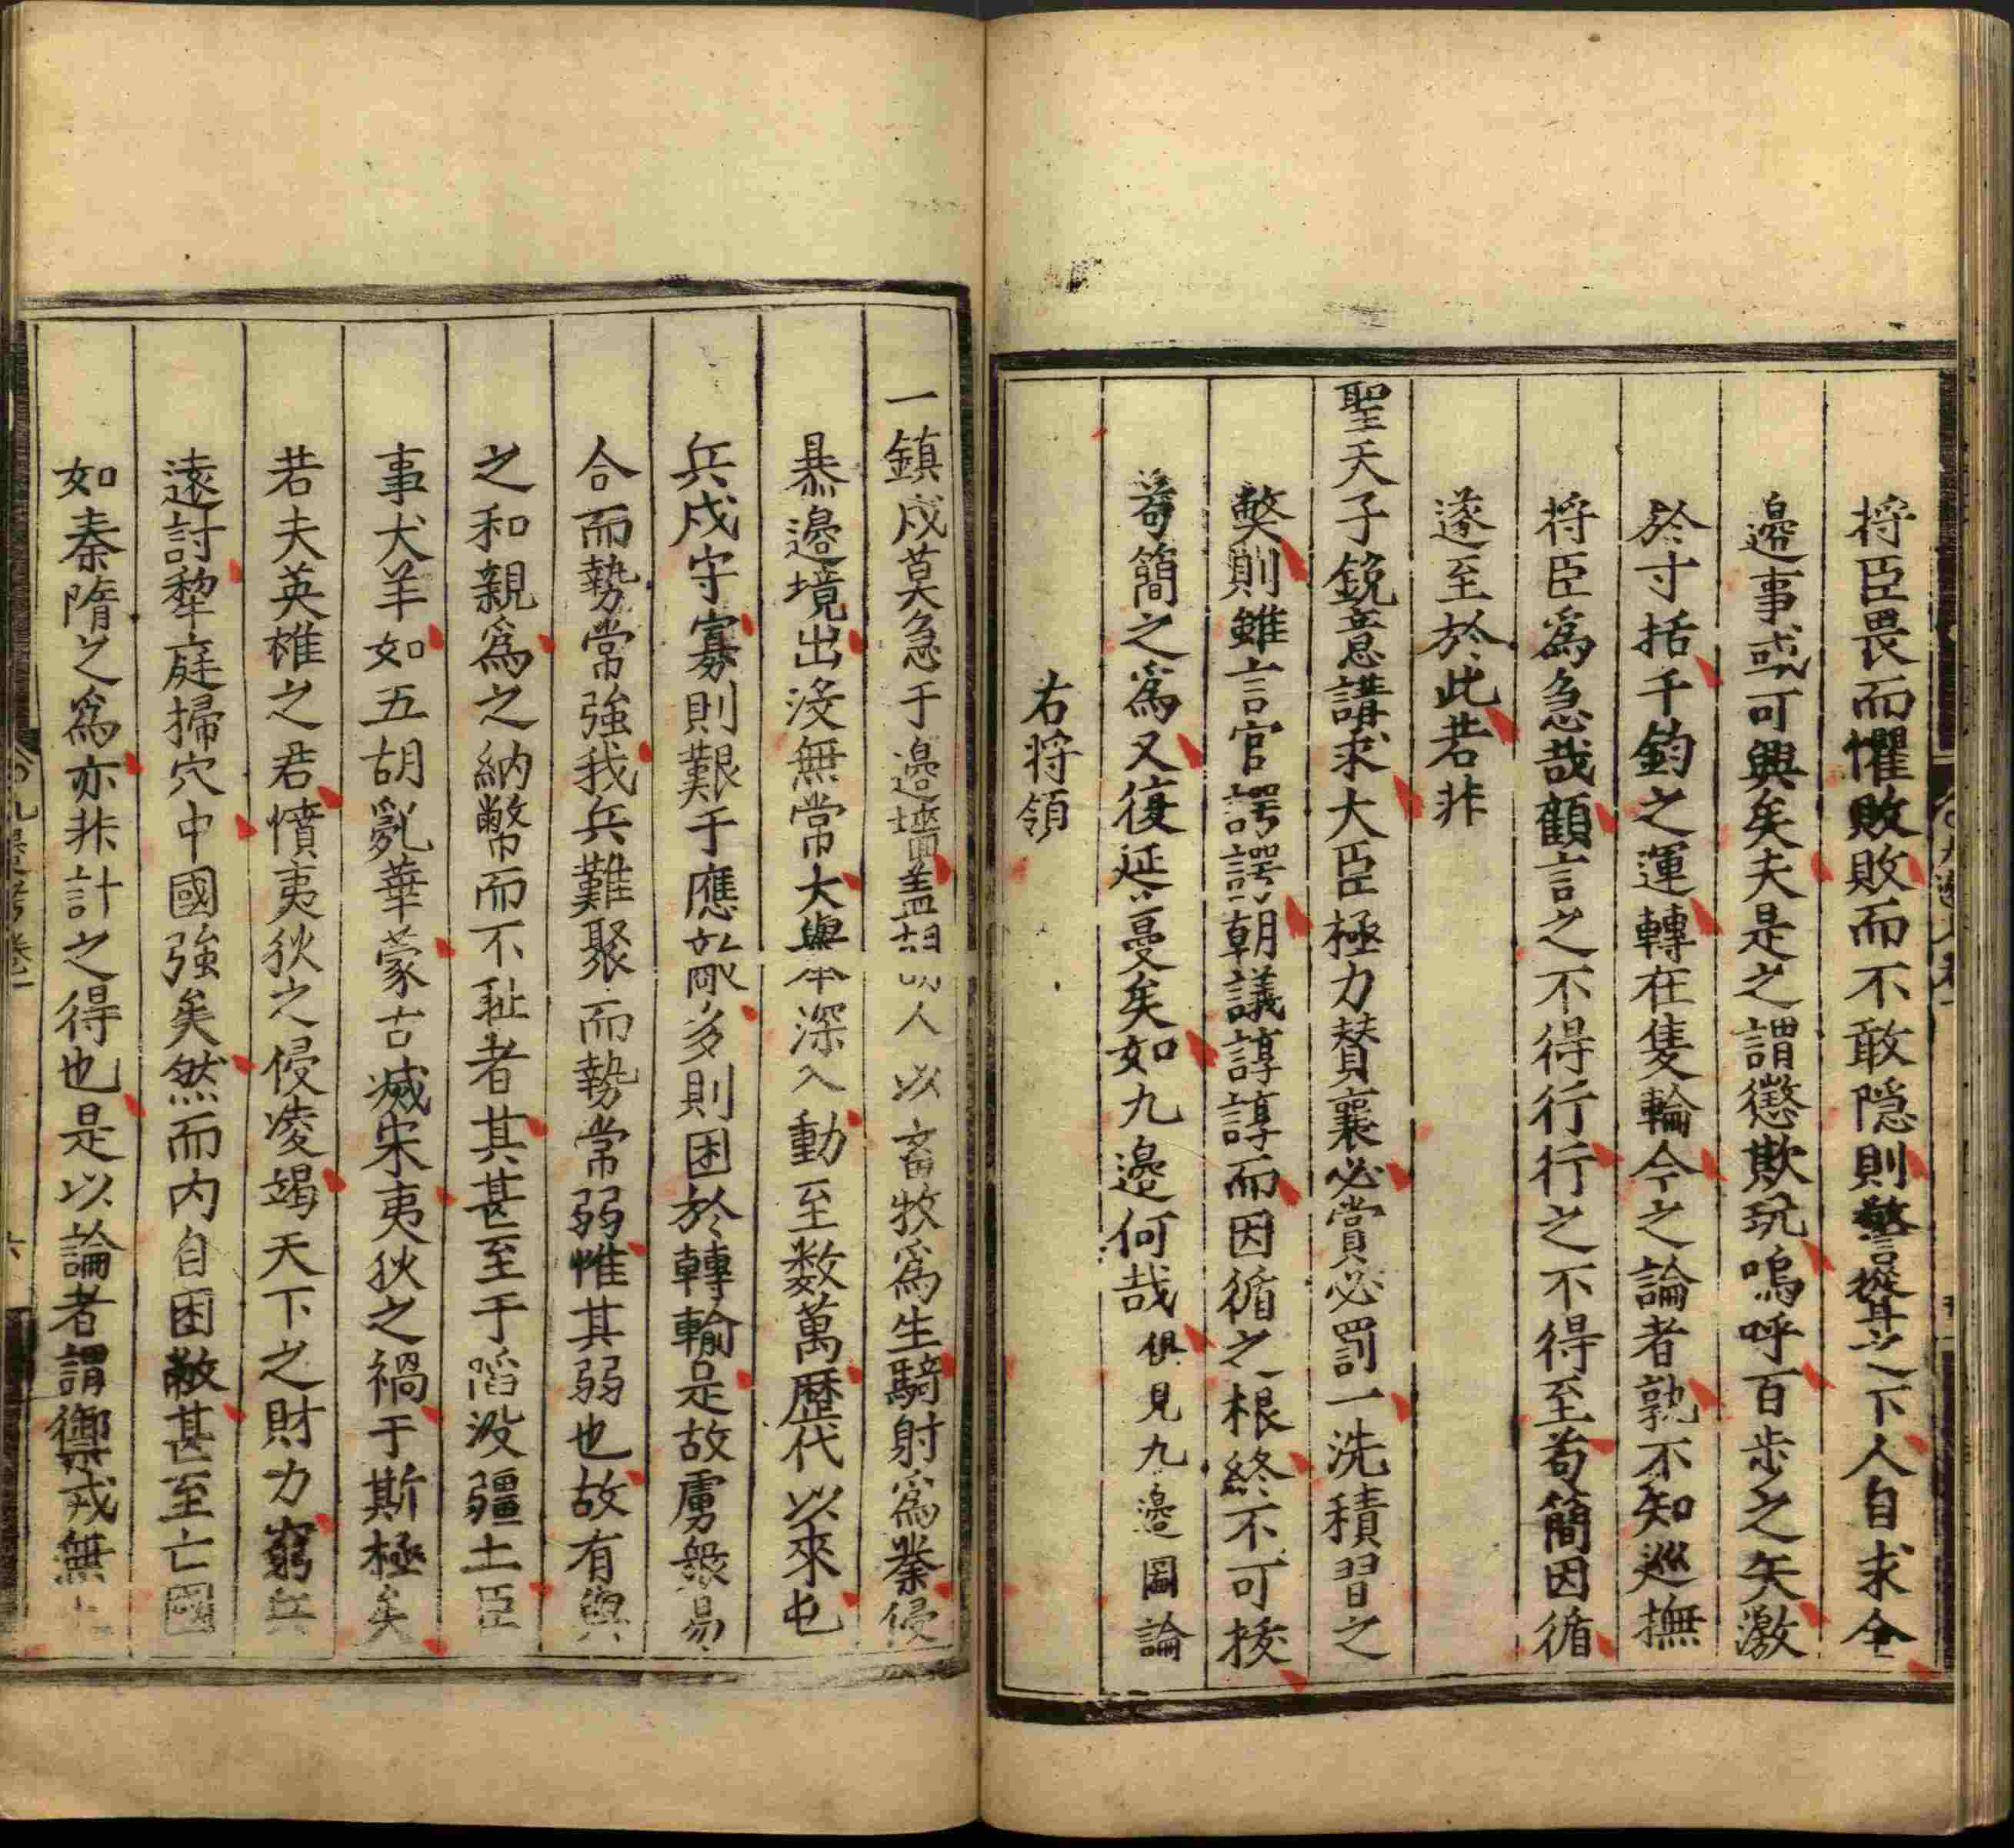 將臣畏而懼敗敗而不敢隠則警聳之下人自求全
邊事或可興矣夫是之謂懲欺玩嗚呼百步之矢激
於寸括千鈞之運轉在隻輪今之論者孰不知巡撫
將臣爲急哉顧言之不得行行之不得至苟簡因循
遂至於此若非
聖天子銳意講求大臣極力賛襄必賞必罰一洗積習之
獘則雖言官諤諤朝議諄諄而因循之根終不可拔
苟簡之爲又復延蔓矣如九邊何哉俱見九邊圖論
右將領
一鎮戍莫急于邊墻盖胡人以畜牧爲生騎射爲業侵
暴邊境出没無常大舉深入動至数萬歷代以來屯
兵戍守寡則艱于應敵多則困於轉輸是故虜衆易
合而勢常強我兵難聚而勢常弱惟其弱也故有與
之和親爲之納幣而不耻者其甚至于滔没疆土臣
事犬羊如五胡亂華蒙古滅宋夷狄之禍于斯極矣
若夫英雄之君憤夷狄之侵凌竭天下之財力窮兵
遠討犂庭掃穴中國強矣然而内自困敝甚至亡國
如秦隋之爲亦非計之得也是以論者謂禦戎無上